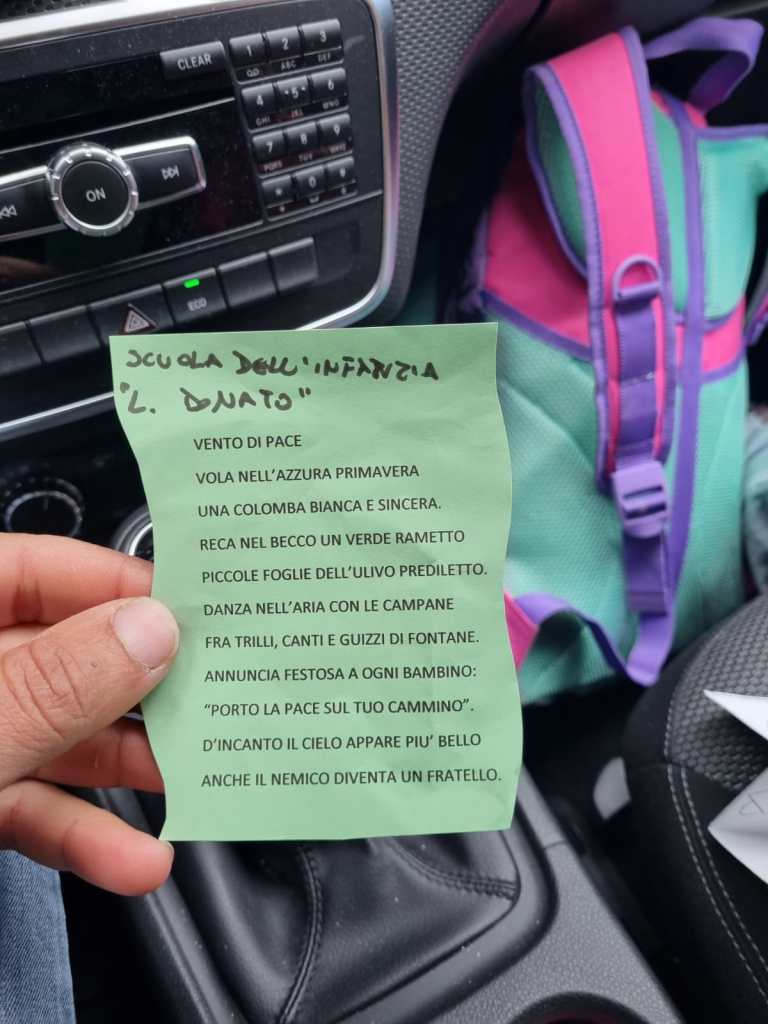 CLEAR
1 2 3
QD ABC DEF
4 5 6
GHI JKL MNO
7 8 9
PQRS TUV WXYZ
* 0 #
ON
ECO
SCUOLA DELL'INFANZIA
"L. DONATO"
VENTO DI PACE
VOLA NELL'AZZURA PRIMAVERA
UNA COLOMBA BIANCA E SINCERA.
RECA NEL BECCO UN VERDE RAMETTO
PICCOLE FOGLIE DELL'ULIVO PREDILETTO.
DANZA NELL'ARIA CON LE CAMPANE
FRA TRILLI, CANTI E GUIZZI DI FONTANE.
ANNUNCIA FESTOSA A OGNI BAMBINO:
"PORTO LA PACE SUL TUO CAMMINO".
D'INCANTO IL CIELO APPARE PIU' BELLO
ANCHE IL NEMICO DIVENTA UN FRATELLO.